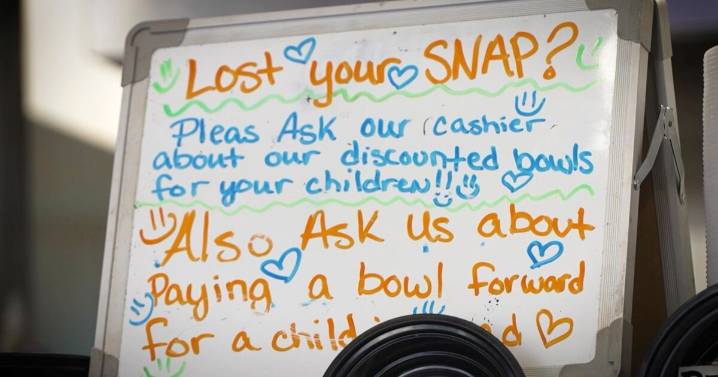 Lost your SNAP?
Pleas Ask our cashier
about our discounted bowls
for your children!!
Also Ask us about
Paying a bowl forward
for a child